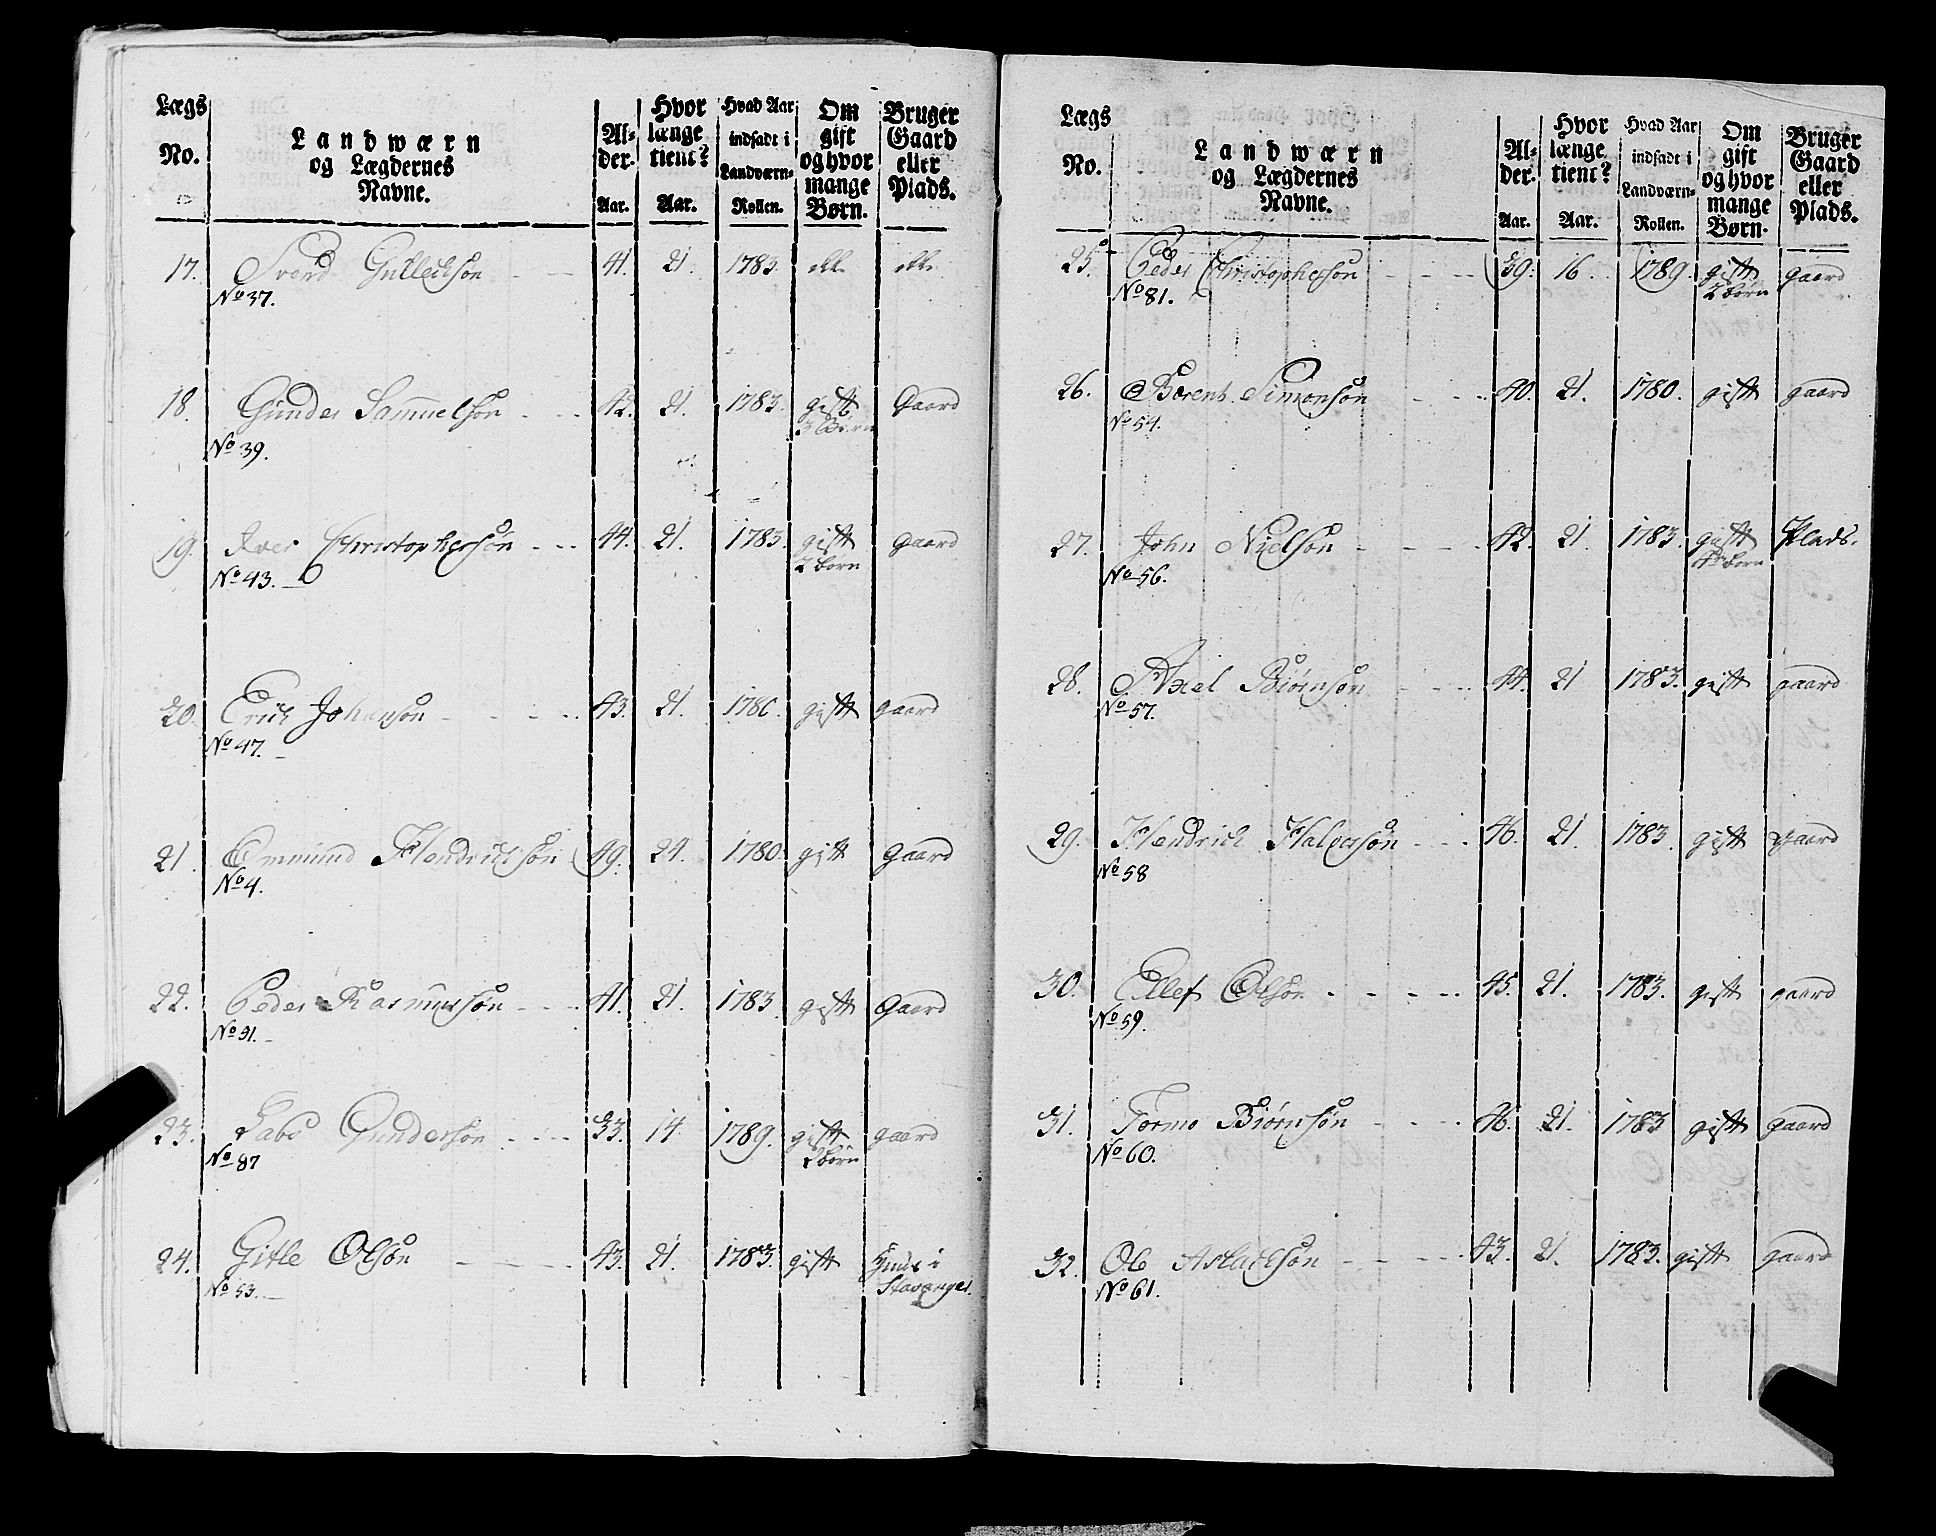 Lægs No. | Landwærn og Lægdernes Navne. | Alder. Aar. | Hvor længe tient? Aar. | Hvad Aar indsadt i Landværn-Rollen. | Om gift og hvor mange Børn. | Bruger Gaard eller Plads.
17. Sverd Gullechsøn 41. 21. 1783. ekke ekke
No 37.
18. Gunder Samuelsøn 42. 21. 1783. gift Gaard
No 39. 3 Børn
19. Iver Christophersøn 44. 21. 1783. gift gaard
No 43. 2 børn
20. Erich Johansøn 43. 21. 1780. gift gaard
No 47.
21. Emmund Hendrichsøn 49. 24. 1780. gift gaard
No 4.
22. Peder Rasmussøn 41. 21. 1783. gift Gaard
No 51.
23. Gundersøn 33. 14. 1789. gift gaard
No 87 2 børn
24. Gitle Olsøn 43. 21. 1783. gift i
No 53. Stavanger.
Lægs No. | Landwærn og Lægdernes Navne. | Alder. Aar. | Hvor længe tient? Aar. | Hvad Aar indsadt i Landværn-Rollen. | Om gift og hvor mange Børn. | Bruger Gaard eller Plads.
25. Peder Christophersøn 39. 16. 1789. gift gaard
No 81. 2 børn
26. Børent Simonsøn 40. 21. 1780. gift gaard
No 54.
27. John Nielsøn 42. 21. 1783. gift Plads.
No 56. børn
28. Axel Biørnsøn 44. 21 1783. gift gaard
No 57.
29. Hendrich Halversøn 46. 21. 1783. gift gaard
No 58
30. Ellef Olsøn 45. 21. 1783. gift gaard
No 59.
31. Tormo Biørnsøn 46. 21. 1783 gift gaard
No 60.
32. Ole Aslachsøn 43. 21. 1783. gift gaard
No 61.